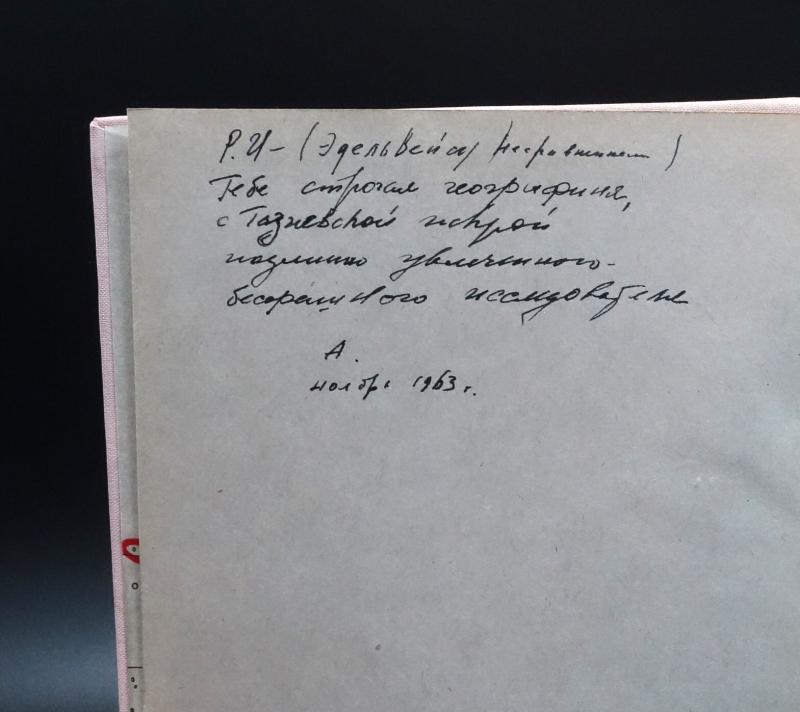 Р.И - (Эдельвейсу несравненному)
Тебе строгая географиня,
с Тазиевской искрой
подлинно увлеченного-
бесстрашного исследователя
А.
ноябрь 1963 г.